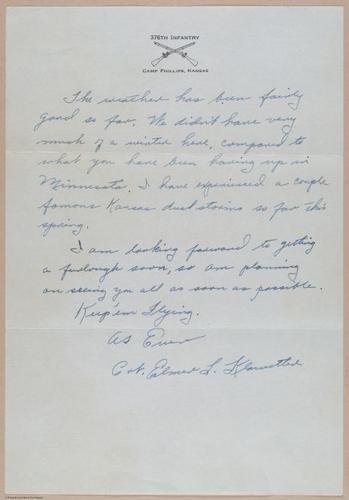 376TH INFANTRY
CAMP PHILLIPS, KANSAS
The weather has been fairly
good so far. We didn't have very
much of a winter here, compared to
what you have been having up in
Minnesota. I have experienced a couple
famous Kansas dust storms so far this
spring.
I am looking forward to getting
a furlough soon, so am planning
on seeing you all as soon as possible.
Keep'em Flying.
As Ever
Elmer L.